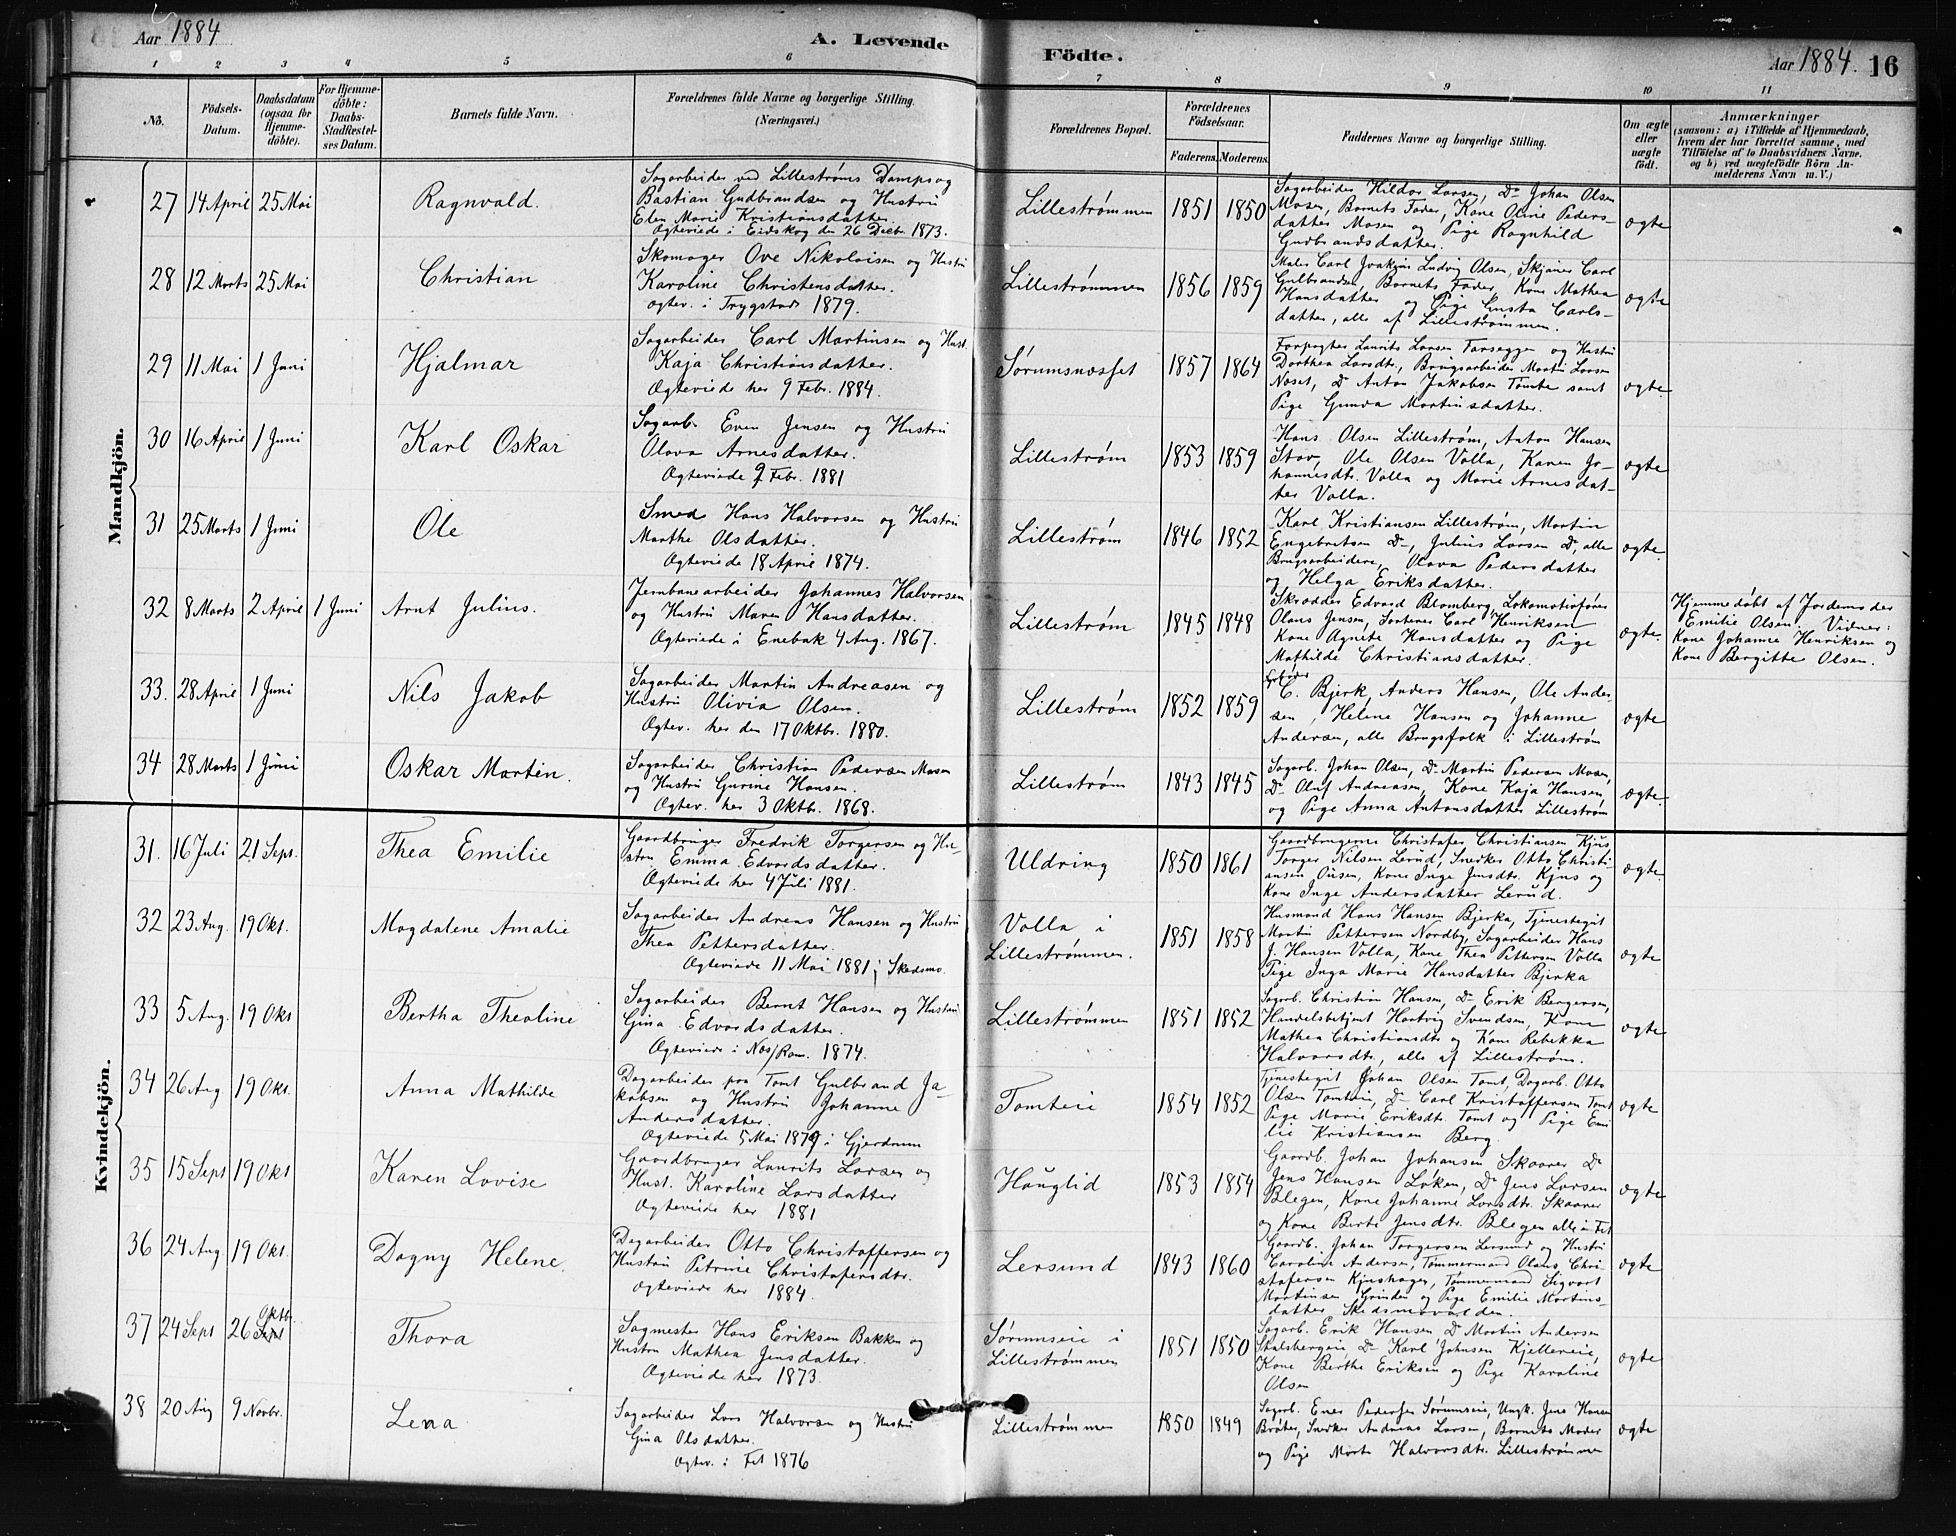 Aar 1884
A. Levende
Födte.
Aar 1884. 16
1 2 3 4 5 6 7 8 9 10 11
No.
Födsels-Datum.
Daabsdatum (ogsaa for Hjemme-döbte).
For Hjemme-döbte: Daabs-Stadfæstel-ses Datum.
Barnets fulde Navn.
Forældrenes fulde Navne og borgerlige Stilling. (Næringsvei.)
Forældrenes Bopæl.
Forældrenes Födselsaar.
Faderens. Moderens.
Faddernes Navne og borgerlige Stilling.
Om ægte eller uægte födt.
Anmærkninger
(saasom: a) i Tilfælde af Hjemmedaab, hvem der har forrettet samme, med Tilföielse af to Daabsvidners Navne. og b) ved uægtefödte Börn An-melderens Navn m. V.)
Mandkjön.
27 14 April 25 Mai Ragnvald.
Sagarbeider ved Lillestrøms Dampsag
Bastian Gudbrandsen og Hustru
Elen Marie Kristiansdatter.
Ægteviede i Eidskog den 26 Decbr. 1873.
Lillestrømmen 1851 1850
Sagarbeider Hildor Larsen, Do Johan Olsen
Mosen, Barnets Fader, Kone Oline Peders-
datter Mosen og Pige Ragnhild
Gudbrandsdatter.
ægte
28 12 Marts 25 Mai Christian
Skomager Ove Nikolaisen og Hustru
Karoline Christensdatter.
Ægtev. i Trygstad 1879.
Lillestrømmen 1856 1859
Maler Carl Joakim Ludvig Olsen, Skjøner Carl
Gulbrandsen, Barnets Fader, Kone Mathea
Hansdatter og Pige Gusta Carls-
datter, alle af Lillestrømmen.
ægte
29 11 Mai 1 Juni Hjalmar
Sagarbeider Carl Martinsen og Hust.
Kaja Christiansdatter.
Ægteviede her 9 Febr. 1884.
Sørumsnæsset 1857 1864
Forpagter Laurits Larsen Farseggen og Hustru
Dorthea Larsdtr., Brugsarbeider Martin Larsen
Næset, Do Anton Jakobsen Tomte samt
Pige Gunda Martinsdatter.
ægte
30 16 April 1 Juni Karl Oskar
Sagarb. Even Jensen og Hustru
Olava Arnesdatter.
Ægteviede 9 Febr. 1881
Lillestrøm 1853 1859
Hans Olsen Lillestrøm, Anton Hansen
Stav, Ole Olsen Volla, Karen Jo-
hannesdtr. Volla og Marie Arnesdat-
ter Volla.
ægte
31 25 Marts 1 Juni Ole
Smed Hans Halvorsen og Hustru
Marthe Olsdatter.
Ægteviede 18 April 1874.
Lillestrøm 1846 1852
Karl Kristiansen Lillestrøm, Martin
Engebretsen Do, Julius Larsen Do, alle
Brugsarbeidere, Olava Pedersdatter
og Helga Eriksdatter.
ægte
32 8 Marts 2 April 1 Juni Arnt Julius.
Jernbanearbeider Johannes Halvorsen
og Hustru Maren Hansdatter.
Ægteviede i Enebak 4 Aug. 1867.
Lillestrøm 1845 1848
Skrædder Edvard Blomberg, Lokomotivfører
Olaus Jensen, Sorterer Carl Henriksen
Kone Agnete Hansdatter og Pige
Mathilde Christiansdatter.
ægte.
Hjemmedøbt af Jordemoder
Emilie Olsen. Vidner:
Kone Johanne Henriksen og
Kone Bergitte Olsen.
33. 28 April 1 Juni Nils Jakob
Sagarbeider Martin Andreasen og
Hustru Olivia Olsen.
Ægtev. her den 17 Oktbr. 1880.
Lillestrøm 1852 1859
C. Bjerk, Anders Hansen, Ole Ander-
sen, Helene Hansen og Johanne
Andersen, alle Brugsfolk i Lillestrøm
ægte
34 28 Marts 1 Juni Oskar Martin.
Sagarbeider Christian Pedersen Mosen
og Hustru Gurine Hansen.
Ægtev. her 3 Oktbr. 1868.
Lillestrøm 1843 1845
Sagarb. Johan Olsen, Do Martin Pedersen Mosen,
Do Oluf Andreasen, Kone Kaja Hansen
og Pige Anna Antonsdatter Lillestrøm
ægte.
Kvindekjön.
31. 16 Juli 21 Sept. Thea Emilie
Gaardbruger Fredrik Torgersen og Hu-
stru Emma Edvardsdatter.
Ægteviede her 4 Juli 1881.
Uldring 1850 1861
Gaardbrugerne Christofer Christiansen Kjus
Torger Nilsen Lerud, Snedker Otto Christi-
ansen Ousen, Kone Inge Jensdtr. Kjus og
Kone Inge Andersdatter Lerud.
ægte.
32 23 Aug. 19 Okt. Magdalene Amalie
Sagarbeider Andreas Hansen og Hustru
Thea Pettersdatter.
Ægteviede 11 Mai 1881 i Skedsmo.
Volla i
Lillestrømmen. 1851 1858
Husmand Hans Hansen Bjerka, Tjenestegut
Martin Pettersen Nordby, Sagarbeider Hans
J. Hansen Volla, Kone Thea Pettersen Volla
Pige Inga Marie Hansdatter Bjerka
ægte
33 5 Aug. 19 Okt Bertha Theoline
Sagarbeider Bernt Hansen og Hustru
Gina Edvardsdatter.
Ægteviede i Næs/Rom. 1874.
Lillestrømmen 1851 1852
Sagarb. Christian Hansen, Do Erik Bergersen,
Handelsbetjent Hartvig Svendsen, Kone
Mathea Christiansdtr og Kone Rebekka
Halvorsdtr., alle af Lillestrøm.
ægte
34 26 Aug 19 Okt. Anna Mathilde
Dagarbeider paa Tomt Gulbrand Ja-
kobsen og Hustru Johanne
Andersdatter.
Ægteviede 5 Mai 1879 i Gjerdrum
Tomteie 1854 1852
Tjenestegut Johan Olsen Tomt, Dagarb. Otto
Olsen Tomteie, Do Carl Kristoffersen Tomt
Pige Marie Eriksdtr Tomt og Pige Emi
lie Kristiansen Berg.
ægte
35 15 Sept 19 Okt Karen Lovise
Gaardbruger Laurits Larsen og
Hust. Karoline Larsdatter
Ægteviede her 1881
Hauglid 1853 1854
Gaardb. Johan Johansen Skaarer Do
Jens Hansen Løken, Do Jens Larsen
Blegen, Kone Johanne Larsdtr. Skaarer
og Kone Berte Jensdtr. Blegen alle i Fet
ægte
36 24 Aug 19 Okt. Dagny Helene.
Dagarbeider Otto Christoffersen og
Hustru Petrine Christofersdtr.
Ægteviede her 1884.
Lersund 1843 1860
Gaardb. Johan Torgersen Lersund og Hustru
Caroline Andersen, Tømmermand Olaus Chri-
stofersen Kjushagen, Tømmermand Sigvart
Martinsen Grinden og Pige Emilie Martins-
datter Skedsmovolden.
ægte
37 24 Sept 26 Oktb. Thora
Sagmester Hans Eriksen Bakken og
Hustru Mathea Jensdatter.
Ægteviede her 1873.
Sørumseie i
Lillestrømmen 1851 1850
Sagarb. Erik Hansen, Do Martin Andersen
Stalsbergeie, Do Karl Johnsen Kjellereie,
Kone Berthe Eriksen og Pige Karoline
Olsen
ægte
38 20 Aug 9 Novbr. Lena
Sagarbeider Lars Halvorsen og Hustru
Gina Olsdatter.
Ægtev. i Fet 1876
Lillestrømmen 1850 1849
Sagarb. Ener Pedersen Sørumseie, Ungk. Jens Hansen
Bråter, Snedker Andreas Larsen, Barnets Moder
og Pige Marte Halvorsdtr. Lillestrømmen
ægte